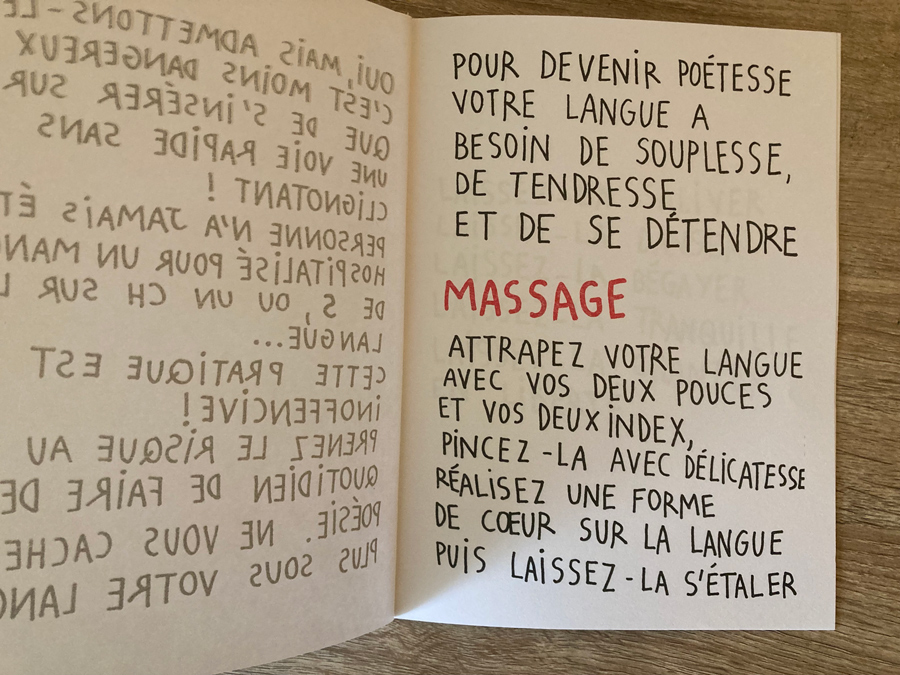 OUI, MAIS ADMETTONS-LE
C'EST MOINS DANGEREUX
QUE DE S'INSÉRER SUR
UNE VOIE RAPIDE SANS
CLIGNOTANT !
PERSONNE N'A JAMAIS ÉT
HOSPITALISÉ POUR UN MANQ
DE S, OU UN CH SUR L
LANGUE...
CETTE PRATIQUE EST
INOFFENCIVE !
PRENEZ LE RISQUE AU
QUOTIDIEN DE FAIRE DE
POÉSIE. NE VOUS CACHE
PLUS SOUS VOTRE LANG
POUR DEVENIR POÉTESSE
VOTRE LANGUE A
BESOIN DE SOUPLESSE,
DE TENDRESSE
ET DE SE DÉTENDRE
MASSAGE
ATTRAPEZ VOTRE LANGUE
AVEC VOS DEUX POUCES
ET VOS DEUX INDEX,
PINCEZ-LA AVEC DÉLICATESSE
RÉALISEZ UNE FORME
DE CŒUR SUR LA LANGUE
PUIS LAISSEZ-LA S'ÉTALER